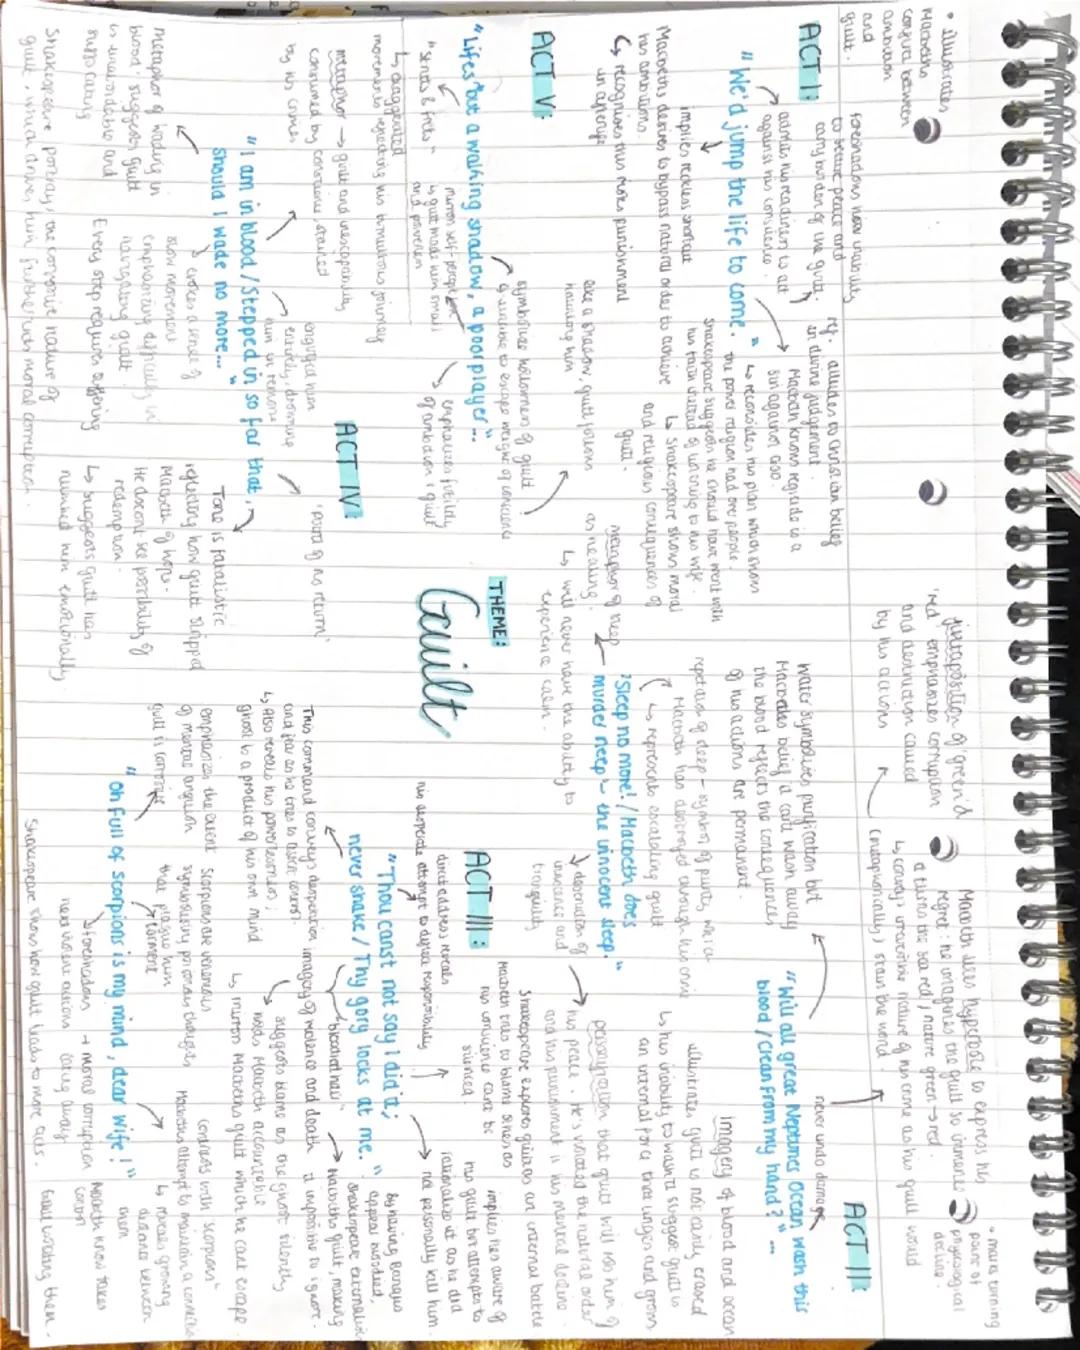 • illustrates
Macbeths
conflict between
ambition
and
guilt.
ACT I:
foreshadows how inability
to secure peace and
carry burden of the guilt.
admits his readiness to act
against his conscience.
"We'd jump the life to come."
implies reckless shortcut
Macbeths desires to bypass natural order to achieve
his ambitions.
↳ recognises this risks punishment
in afterlife
ref. alludes to Christian belief
in divine judgement.
Macbeth knows regicide is a
sin against God.
↳ reconsiders his plan which shows
the power religion had over people.
Shakespeare suggests he should have went with
his faith instead of listening to his wife.
↳ Shakespeare shows moral
and religious consequences of
guilt.
ACT II:
• marks turning
point of
physcological
decline.
Macbeth uses hyperbole to express his
regret. he imagines the guilt so immense
it turns the sea red / nature green → red.
↳ conveys irreversible nature of his crime as his guilt would
(metaphorically) stain the world.
juxtaposition of 'green' &
'red' emphasizes corruption
and destruction caused
by his actions
never undo damage
"Will all great Neptunes ocean wash this
blood / Clean from my hand?"...
water symbolises purification but
Macbeths belief it cant wash away
the blood reflects the consequences
of his actions are permanent.
Imagery of blood and ocean
illustrates guilt is not easily erased
↳ his inability to wash it suggest guilt is
an internal force that linges and grows
repetition of sleep - symbol of purity, which
Macbeth has destroyed through his crime
↳ represents escalating guilt
"Sleep no more! / Macbeth does
murder sleep" - the innocent sleep."
metaphor of sleep
as healing.
↳ will never have the ability to
experience calm.
↓ desecration of
innocence and
tranquility
personification that guilt will rob him of
his peace. He's violated the natural order
and his punishment is his mental decline
Shakespeare explores guilt as an internal battle
THEME:
Guilt
ACT III:
direct address, reveals
his desperate attempt to deflect responsibility
Macbeth tries to blame others as
his conscience cant be
silenced.
implies hes aware of
his guilt but attempts to
rationalize it as he did
not personally kill him.
"Thou canst not say I did it;
never shake / Thy gory locks at me."
This command conveys desperation
and fear as he tries to assert control.
↳ Also reveals his powerlessness;
ghost is a product of his own mind
imagery of violence and death
'bloodied hair'
suggests blame as the ghost silently
holds Macbeth accountable
↳ mirrors Macbeths guilt which he cant escape.
By having Banquo
appear bloodied,
Shakespeare externalises
Macbeths guilt, making
it impossible to ignore.
emphasizes the extent
of mental anguish
guilt is corrosive
Scorpions are venomous
symbolising poisonous thoughts
that plague him
→ torment
contrasts with 'scorpions'
Macbeths attempt to maintain a connection
↳ reveals growing
distance between
them
"Oh full of scorpions is my mind, dear wife!"
↳ foreshadows → moral corruption
next violent actions eating away
Macbeth know takes
control
Shakespeare shows how guilt leads to more acts.
Guilt isolating them.
ACT IV:
'point of no return'
"I am in blood / Stepped in so far that,
should I wade no more..."
engulfed him
entirely, drowning
him in remorse
metaphor of 'wading in
blood' suggests guilt
is unavoidable and
suffocating
↳ evokes a sense of
slow movement
emphasizing difficulty in
navigating guilt.
Every step requires suffering
Tone is fatalistic
reflecting how guilt stripped
Macbeth of hope.
He doesnt see possibility of
redemption.
↳ suggests guilt has
numbed him emotionally
Shakespeare portrays the corrosive nature of
guilt, which drives him further into moral corruption.
ACT V:
like a shadow, guilt follows
haunting him
symbolizes hollowness of guilt
↳ unable to escape weight of conscience
"Lifes but a walking shadow, a poor player"...
"struts & frets"
↳ exaggerated
movements reflecting his tumultuous journey
mirrors self-perception
as guilt made him small
and powerless
emphasizes futility
of ambition & guilt
metaphor → guilt and inescapability
consumed by conscience, stained
by his crimes